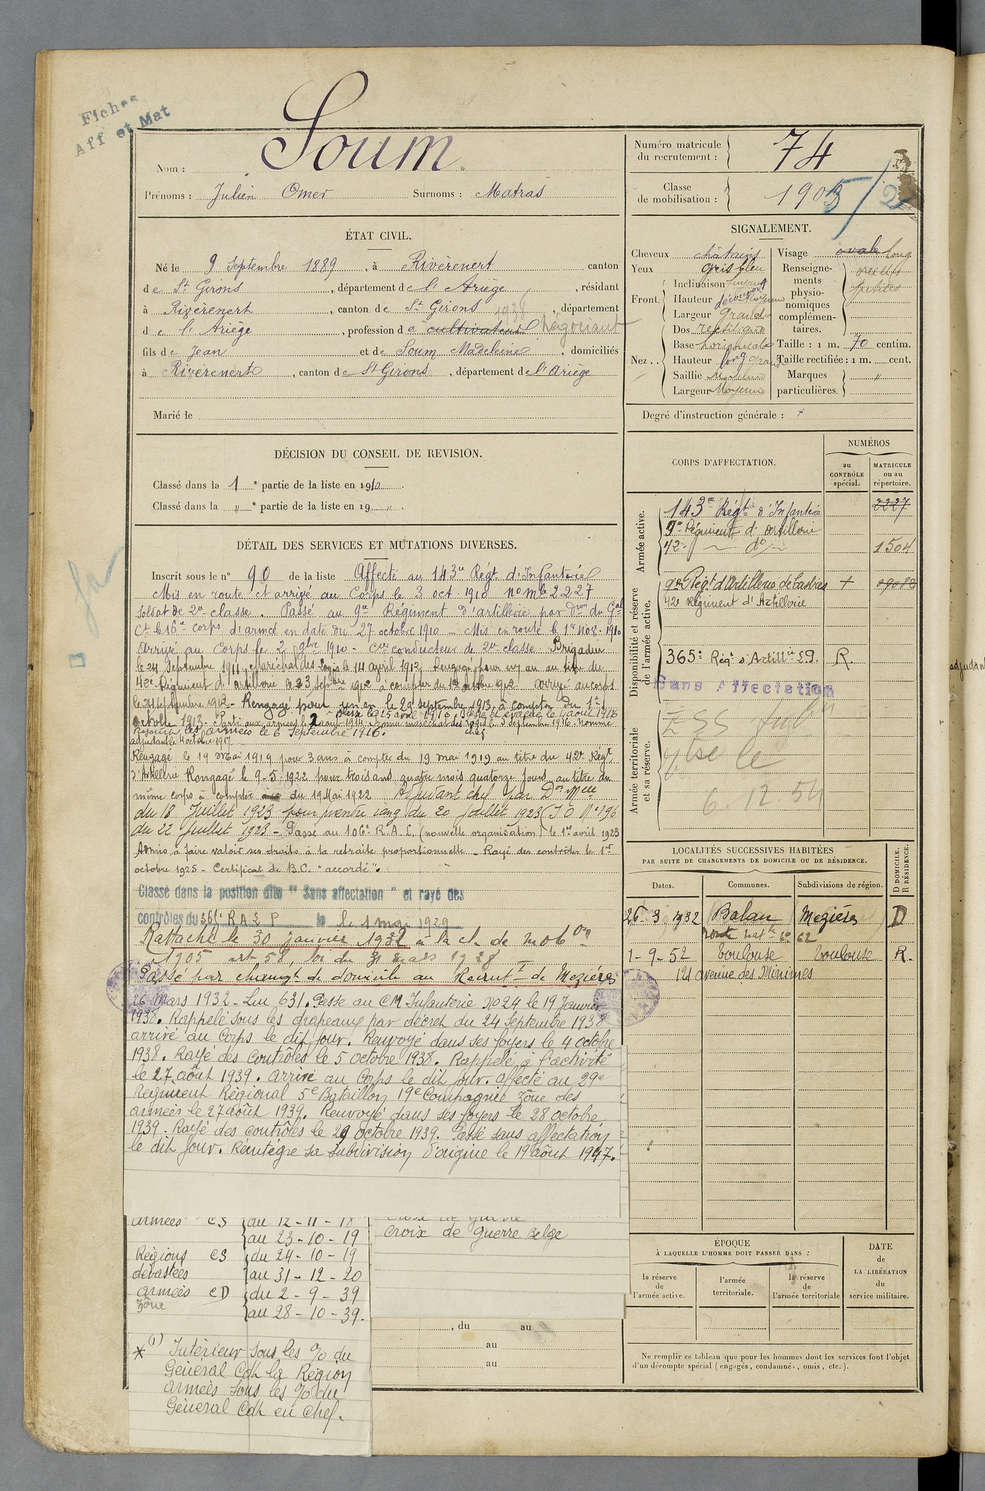 Fiches
Aff et Mat
Nom : Soum
Prénoms : Julien Omer Surnoms : Matras
Numéro matricule du recrutement : 74
Classe de mobilisation : 1905/2
ÉTAT CIVIL.
Né le 9 Septembre 1889, à Rivèrenert canton
de St Girons, département de l'Ariège, résidant
à Rivèrenert, canton de St Girons 1938, département
de l'Ariège, profession de cultivateur Négociant
fils de Jean et de Soum Madeleine, domiciliés
à Rivèrenert, canton de St Girons, département de l'Ariège
Marié le
SIGNALEMENT.
Cheveux châtains
Yeux gris bleu
Front. Inclinaison
Hauteur
Largeur Grande
Nez. Dos rectiligne
Base horizontale
Hauteur long
Saillie Moyenne
Largeur Moyenne
Visage ovale long
Renseignements physionomiques complémentaires. oreilles petites
Taille : 1 m. 70 centim.
Taille rectifiée : 1 m. cent.
Marques particulières. "
Degré d'instruction générale :
DÉCISION DU CONSEIL DE REVISION.
Classé dans la 1e partie de la liste en 1910.
Classé dans la " e partie de la liste en 19 " .
CORPS D'AFFECTATION.
NUMÉROS
au CONTRÔLE spécial.
MATRICULE ou au répertoire.
Armée active.
143me Régt d'Infanterie 2227
9e Régiment d'Artillerie
42e - do - 1504
Disponibilité et réserve de l'armée active.
9me Régt d'Artillerie de Castres +
42e Régiment d'Artillerie
365e Régt d'Artillie R.
Sans Affectation
Armée territoriale et sa réserve.
6.12.54
DÉTAIL DES SERVICES ET MUTATIONS DIVERSES.
Inscrit sous le n° 90 de la liste Affecté au 143e Régt d'Infanterie
Mis en route et arrivé au Corps le 3 oct 1910 no mle 2227
soldat de 2e classe. Passé au 9me Régiment d'artillerie par Don du Gal
Ct le 16e corps d'armée en date du 27 octobre 1910 - Mis en route le 1er nov. 1910
Arrivé au Corps le 2 9bre 1910 - Cer conducteur de 2e classe. Brigadier
le 24 Septembre 1911, Maréchal des logis le 14 avril 1912, Rengagé pour un an au titre du
42e Régiment d'artillerie le 23 septbre 1912 à compter du 1er octobre 1912 arrivé au corps
Rengagé pour un an le 29 septembre 1913, à compter du 1er
octobre 1913 - Parti aux armées le 2 août 1914
aux armées le 6 Septembre 1916.
adjudant le 4 octobre 1917
Rengagé le 19 Mai 1919 pour 3 ans à compter du 19 mai 1919 au titre du 42e Régt
d'Artillerie Rengagé le 9-5-1922 pour trois ans quatre mois quatorze jours, au titre du
même corps à compter du 19 Mai 1922 Adjudant chef par Don Mlle
du 18 Juillet 1923 pour prendre rang du 20 Juillet 1923 (J.O. No 196
du 22 Juillet 1923 - Passé au 106e R.A.L. (nouvelle organisation) le 1er avril 1925
Admis à faire valoir ses droits à la retraite proportionnelle - Rayé des contrôles le 1er
octobre 1925 - Certificat de B.C. "accordé".
Classé dans la position dite "Sans affectation" et rayé des
contrôles du 365e R A L P le 1 mai 1929
Rattaché le 30 janvier 1932 à la cl. de mobon
1905 art 58, loi du 31 mars 1928
Passé par changt de domicile au Recrutt de Mezières
26 Mars 1932 - Lin 631. Passé au CM Infanterie No 24 le 19 Janvier
1938. Rappelé sous les drapeaux par décret du 24 Septembre 1938
arrivé au Corps le dit jour. Renvoyé dans ses foyers le 4 octobre
1938. Rayé des contrôles le 5 octobre 1938. Rappelé à l'activité
le 27 août 1939. Arrivé au Corps le dit jour. Affecté au 29e
Régiment Régional 5e Bataillon 19e Compagnie zône des
armées le 27 août 1939. Renvoyé dans ses foyers le 28 octobre
1939. Rayé des contrôles le 29 octobre 1939. Passé sans affectation
le dit jour. Réintègre sa subdivision d'origine le 19 août 1947.
LOCALITÉS SUCCESSIVES HABITÉES
PAR SUITE DE CHANGEMENTS DE DOMICILE OU DE RÉSIDENCE.
Dates. Communes. Subdivisions de région. D DOMICILE. R RÉSIDENCE.
26-3-1932 Balan Mezières D
route
1-9-52 Toulouse Toulouse R.
121 avenue des Minimes
armées CS au 12-11-18
au 23-10-19 Croix de guerre belge
Régions CS du 24-10-19
dévastées au 31-12-20
armées CD du 2-9-39
zône au 28-10-39.
*(1) Intérieur sous les % du
Général Cdt la Région
armées sous les % du
Général Cdt en Chef.
, du au
au
au
ÉPOQUE
À LAQUELLE L'HOMME DOIT PASSER DANS :
la réserve de l'armée active.
l'armée territoriale.
la réserve de l'armée territoriale
DATE DE LA LIBÉRATION du service militaire.
Ne remplir ce tableau que pour les hommes dont les services font l'objet
d'un décompte spécial (engagés, condamnés, omis, etc.).